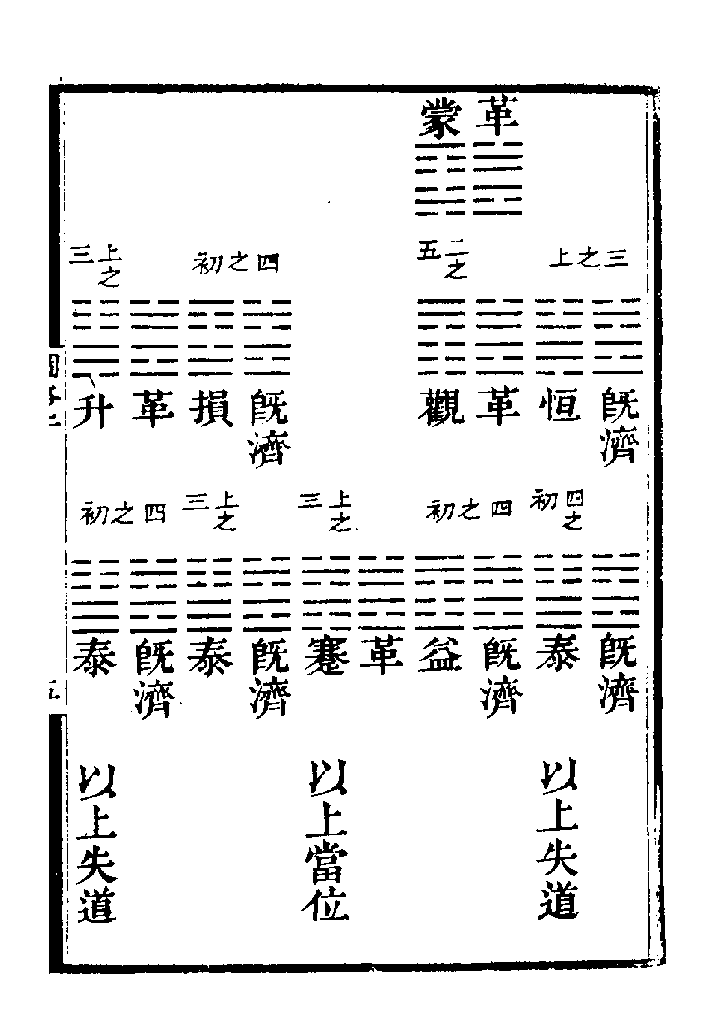 革
蒙
三之上
二之五
四之初
上之三
既濟
恒
革
觀
既濟
損
革
升
四之初
四之初
上之三
上之三
四之初
既濟
泰
既濟
益
革
蹇
既濟
泰
既濟
泰
以上失道
以上當位
以上失道